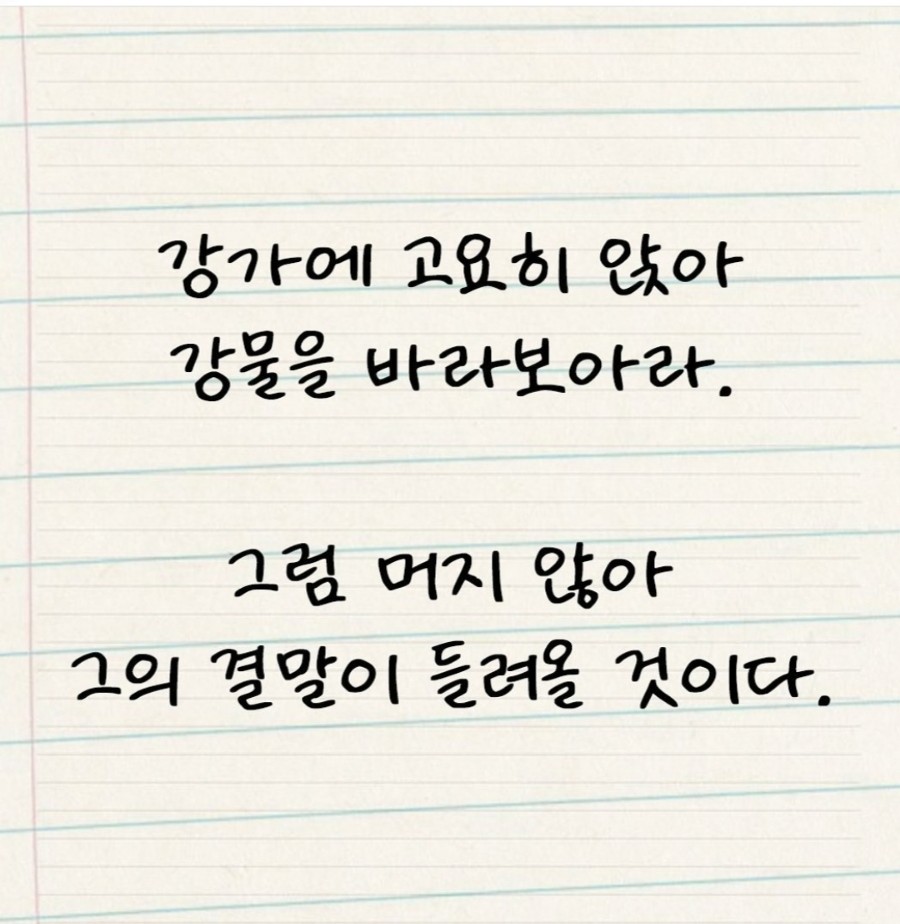 강가에 고요히 앉아
강물을 바라보아라.
그럼 머지 않아
그의 결말이 들려올 것이다.